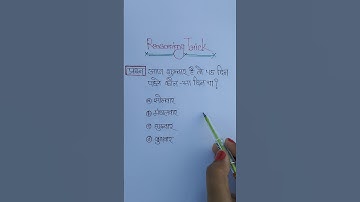 Reasoning Trick
प्रश्न आज शुक्रवार है तो 45 दिन
पहले कौन-सा दिन था?
सोमवार
मंगलवार
शुक्रवार
बुधवार